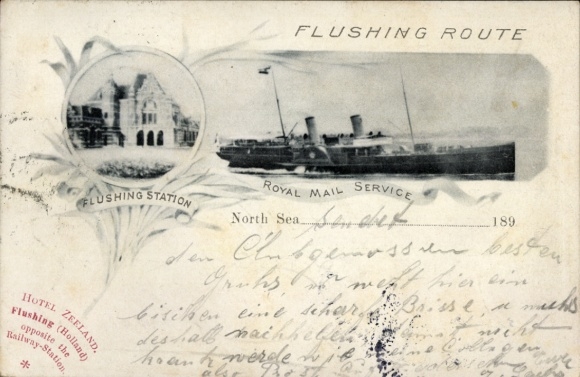 FLUSHING ROUTE
FLUSHING STATION
ROYAL MAIL SERVICE
North Sea sendet 189
den Clubgenossen besten
Gruß weht hier ein
bischen eine scharfe Brise u muß
deshalb nachhelfen damit nicht
krank werde wie meine Collegen
also
HOTEL ZEELAND,
Flushing (Holland)
opposite the
Railway-Station